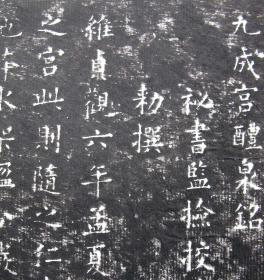 九成宫醴泉銘
祕書監檢校
勅撰
維貞觀六年孟夏
之宫此則隨之仁
本水